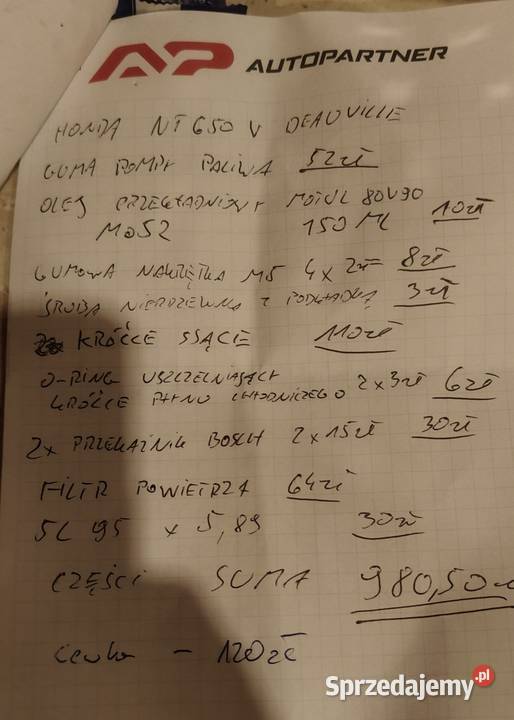 AP AUTOPARTNER
HONDA NT 650 V DEAUVILLE
GUMA POMPY PALIWA 52zł
OLEJ PRZEKŁADNIOWY MOTUL 80W90 10zł
MoS2 150 ML
GUMOWA NAKRĘTKA M5 4 x 2zł= 8zł
ŚRUBA NIERDZEWNA Z PODKŁADKĄ 3zł
KRÓĆCE SSĄCE 110zł
O-RING USZCZELNIAJĄCY 2 x 3zł 6zł
KRÓĆCE PŁYNU CHŁODNICZEGO
2x PRZEKAŹNIK BOSCH 2 x 15zł 30zł
FILTR POWIETRZA 64zł
5L 95 x 5,89 30zł
CZĘŚCI SUMA 980,50
- 120zł
Sprzedajemy.pl